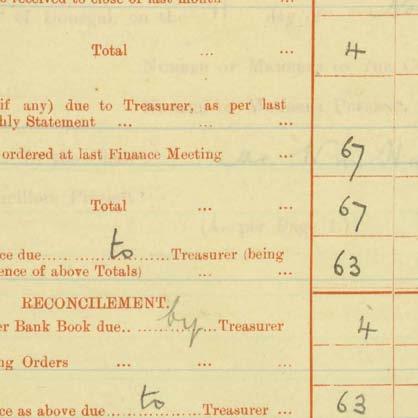 e received to close of last month
Total ... ... 4
if any) due to Treasurer, as per last
hly Statement ... ... ...
ordered at last Finance Meeting ... 67
Total ... ... 67
ce due.. to ........Treasurer (being
ence of above Totals) ... ... 63
RECONCILEMENT.
er Bank Book due.. by ...Treasurer 4
ng Orders ... ... ...
ce as above due.... to ......Treasurer ... 63